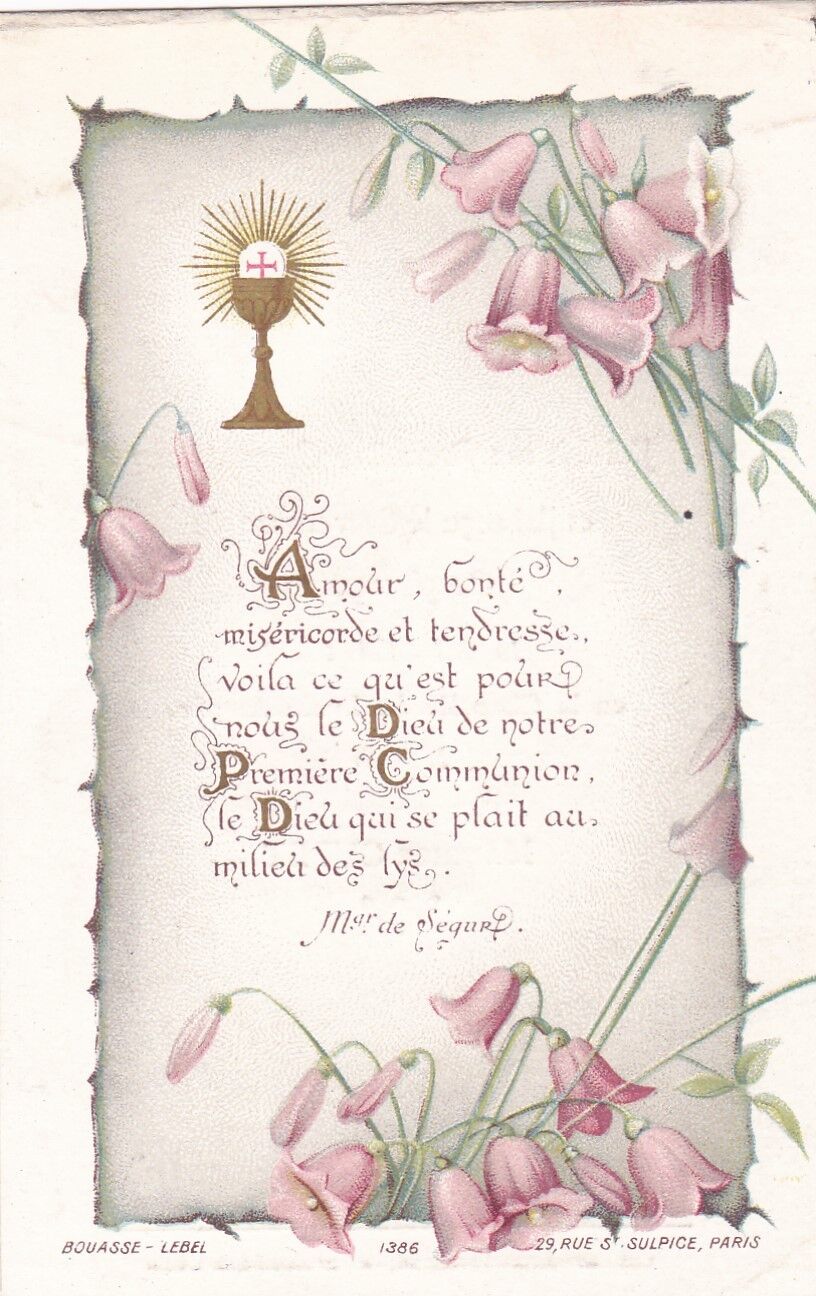 Amour, bonté,
miséricorde et tendresse,
voila ce qu'est pour
nous le Dieu de notre
Première Communion,
le Dieu qui se plait au
milieu des lys.
Mgr. de Ségur.
BOUASSE - LEBEL 1386 29, RUE ST. SULPICE, PARIS